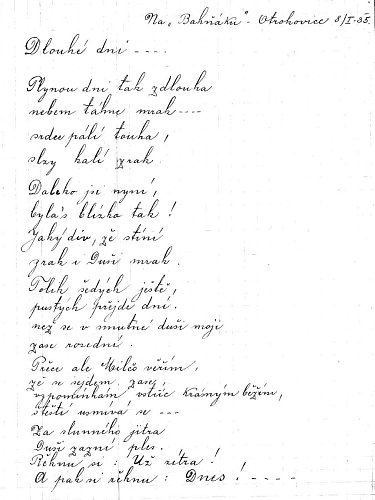 Na „Bahňáku“ - Otrokovice 8/I-35.
Dlouhé dni ----
Plynou dni tak zdlouha
nebem táhne mrak ----
srdce pálí touha,
slzy kalí zrak.
Daleko jsi nyní,
bylas blízko tak!
Jaký div, že stíní
zrak i Duši mrak.
Tolik šedých ještě,
pustých přejde dní.
než se v smutné duši mojí
zase rozední.
Přece ale Milčo věřím,
že se sejdem zase,
vzpomínkám vstříc krásným běžím,
štěstí usmívá se ---
Za slunného jitra
Duší zazní ples.
Řeknu si: Už zítra!
A pak si řeknu: Dnes! -----